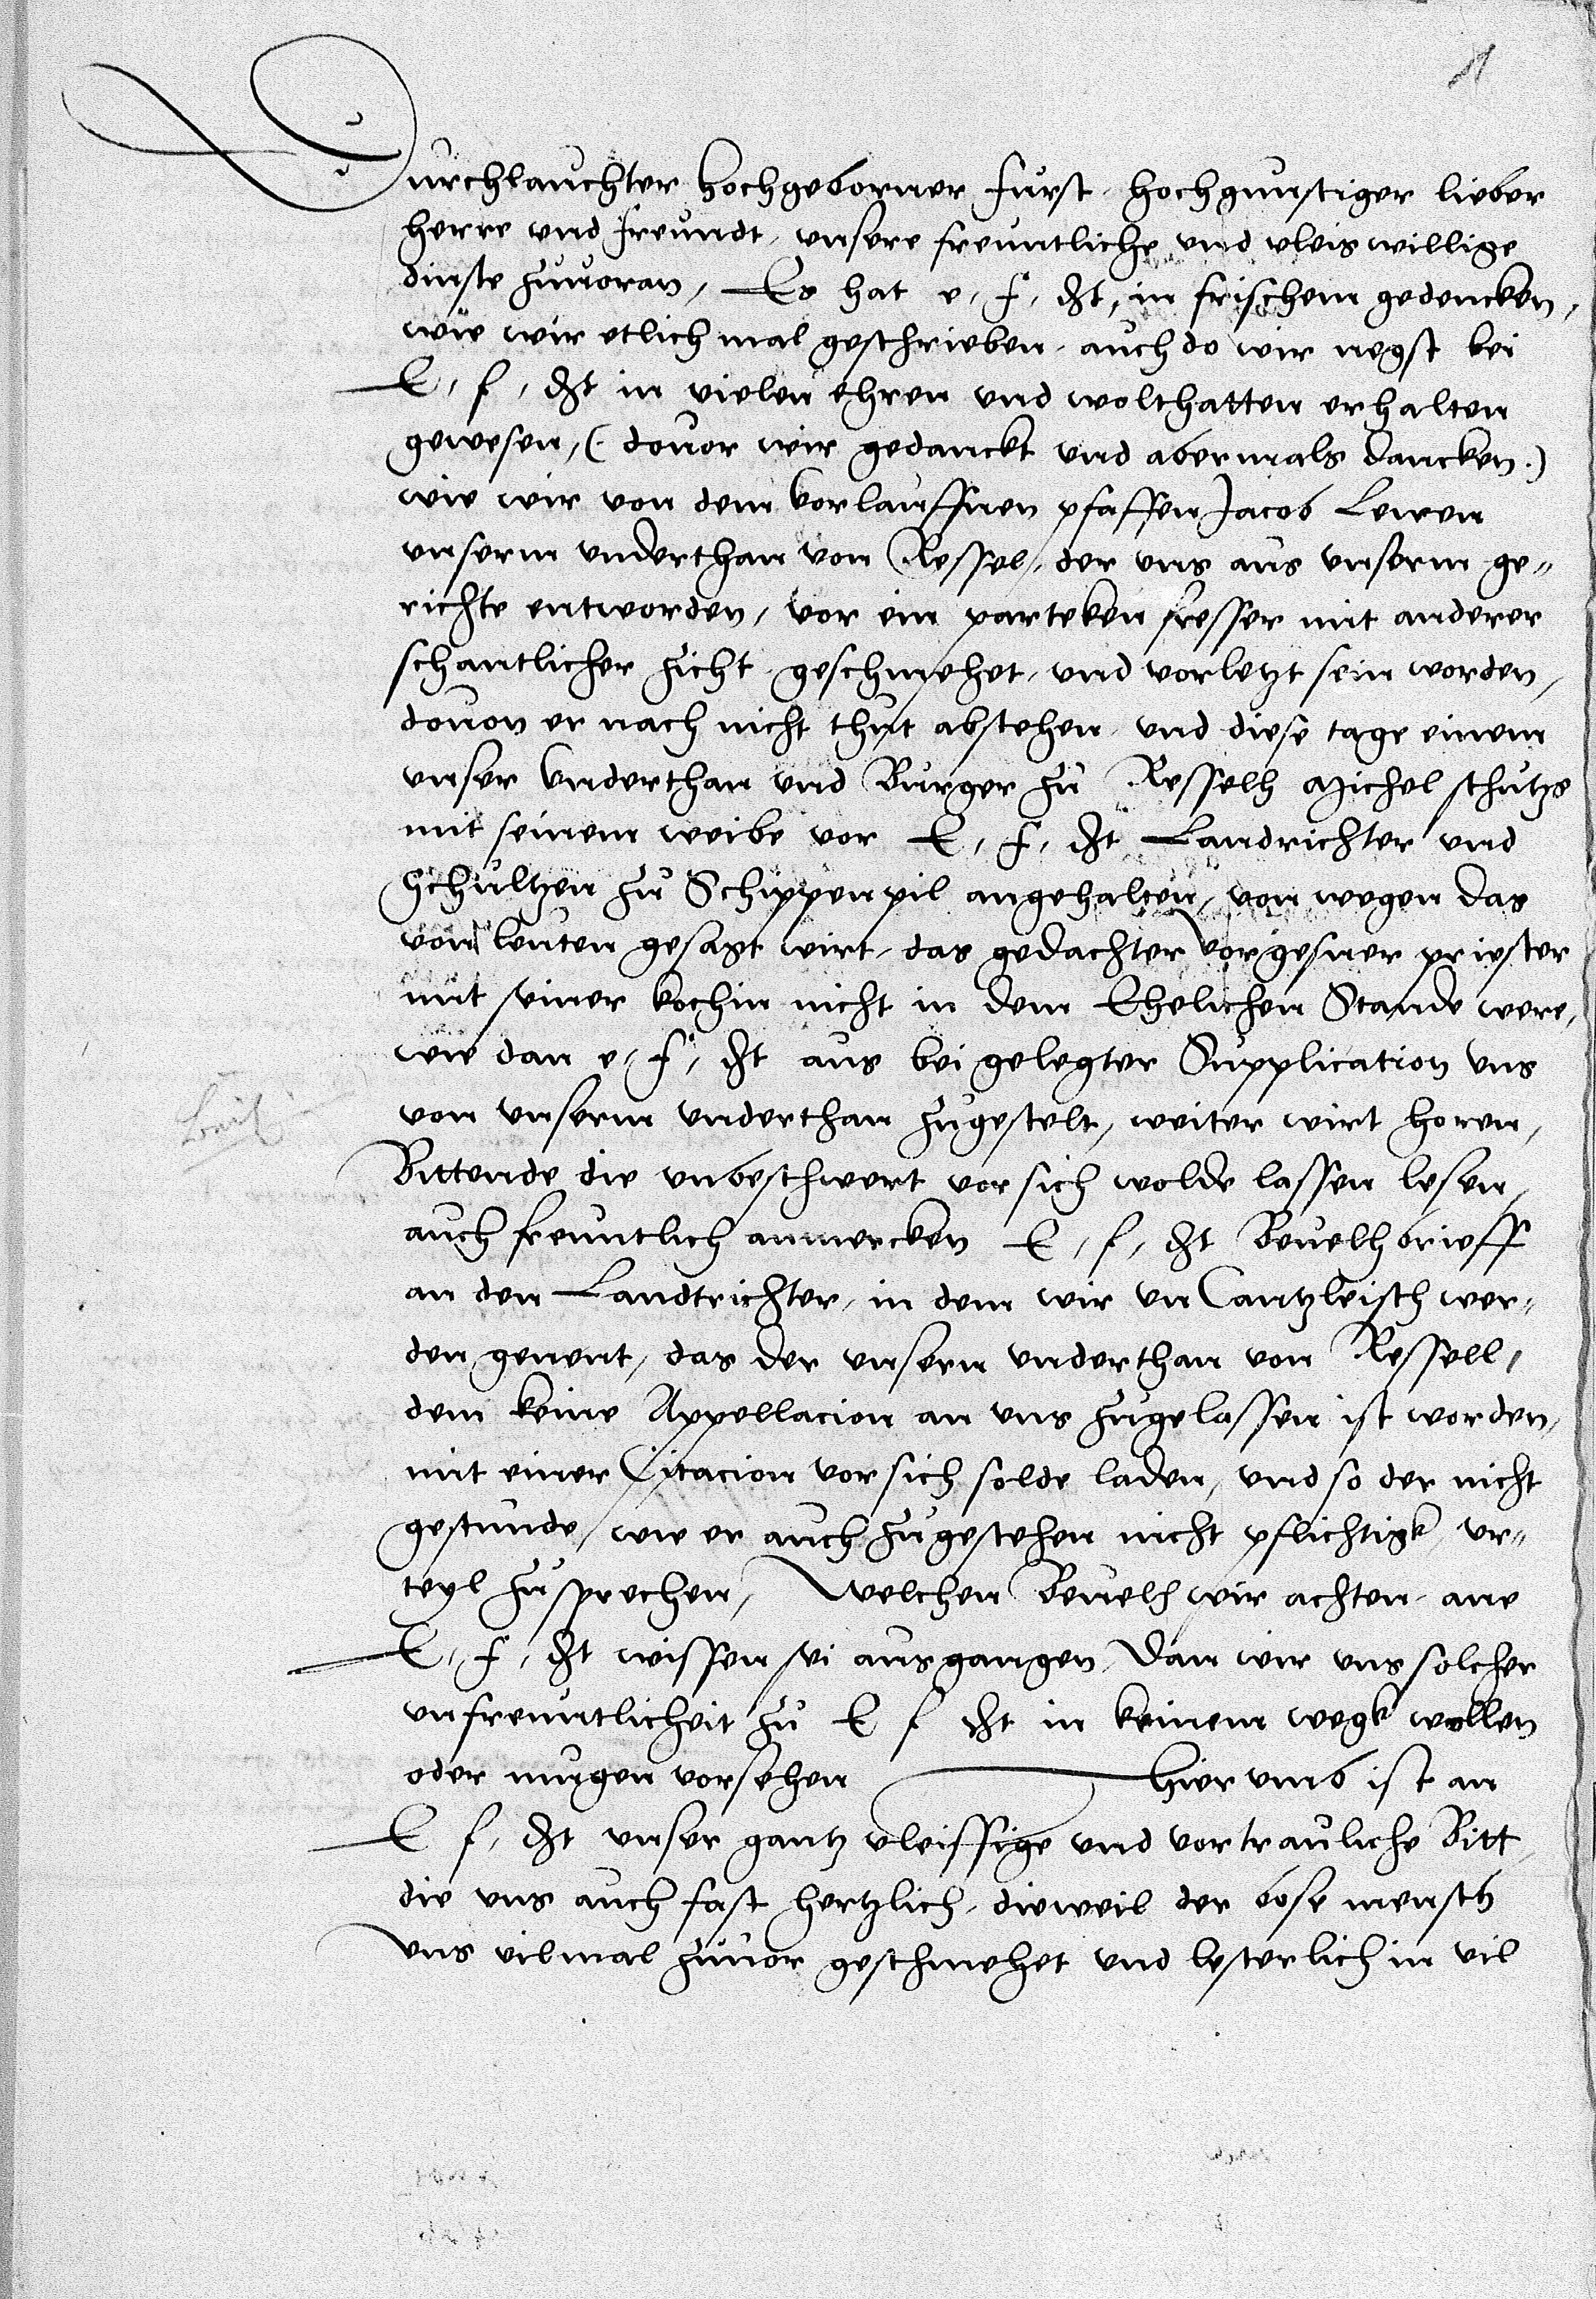 Durchlauchter hochgeborner furst, hochgunstiger lieber
herre vnd freundt, vnsere freuntliche vnd vleiswillige
dinste zuuoran, Es hat e, f, dt, in frischem gedencken,
wie wir etlich mal geschrieben, auch do wir negst bei
E, f, dt in vielen ehren vnd wolthatten erhalten
gewesen, (douor wir gedanckt vnd abermals dancken.)
wie wir von dem vorlauffnen pfaffen Jacob Lewen
vnserm vnderthan von Ressel, der vns aus vnserm ge„
richte entworden, vor ein parteken fresser mit anderer
schantlicher zicht, geschmehet, vnd vorletzt sein worden,
douon er nach nicht thut abstehen, vnd diese tage einem
vnser vnderthan vnd Burger zu Resselh Michel schutzs
mit seinem weibe vor E, f, dt Landrichter vnd
Schultzen zu Schippenpil angehalten, von wegen das
von leuten gesagt wirt, das gedachter vorgesner priester
mit seiner kochin nicht in dem Ehelichen Stande were,
wie dan e, f, dt aus bei gelegter Supplication vns
von vnserm vnderthan zugestelt, weiter wirt horen,
Bittende die vnbeschwert vor sich wolde lassen lesen,
auch freuntlich anmercken E, f, dt Beuelh brieff
an den Landtrichter, in dem wir vn Cantzleisch wer„
den genent, das der vnsern vnderthan von Ressell,
dem keine Appellacion an vns zugelassen ist worden,
mit einer Citacion vor sich solde laden, vnd so der nicht
gestunde, wie er auch zugestehen nicht pflichtigk, vr„
teyl zu sprechen, Welchen Beuelh wir achten, ane
E, f, dt wissen sei ausgangen, Dan wir vns solcher
vnfreuntlicheit zu E f dt in keinem wegk wollen
oder mugen vorsehen Hier vmb ist an
E f, dt vnser gantz vleissige vnd vortrauliche Bitt,
die vns auch fast hertzlich, dieweil der bose mensch
vns vilmal zuuor geschmehet vnd lesterlich in vil